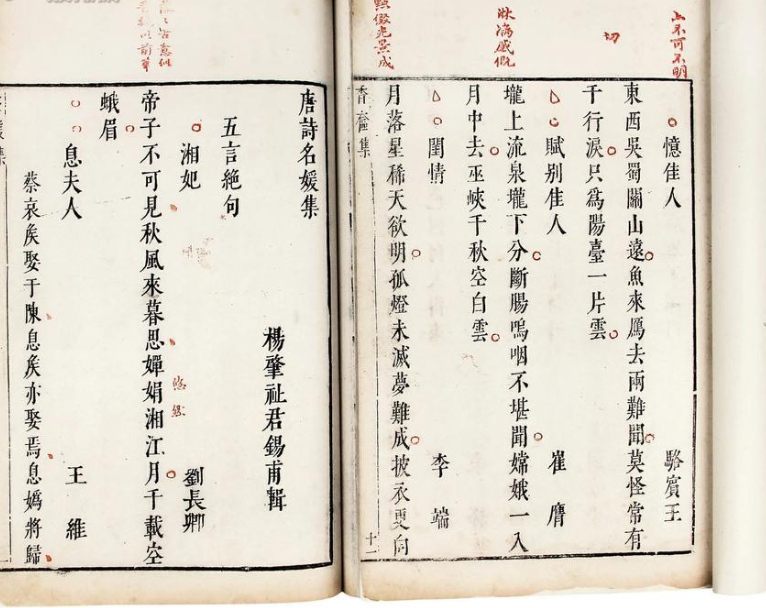 山不可不明
切
狀滿感慨
憶佳人
駱賓王
東西吳蜀關山遠魚來鴈去兩難聞莫怪常有
千行淚只爲陽臺一片雲
賦别佳人
崔膺
壠上流泉壠下分斷腸嗚咽不堪聞嫦娥一入
月中去巫峽千秋空白雲
閨情
李端
月落星稀天欲明孤燈未滅夢難成披衣更向
香奩集
十一
唐詩名媛集
楊肇祉君錫甫輯
五言絶句
湘妃
劉長卿
帝子不可見秋風來暮思嬋娟湘江月千載空
蛾眉
悠然
息夫人
王維
蔡哀矦娶于陳息矦亦娶焉息媯將歸